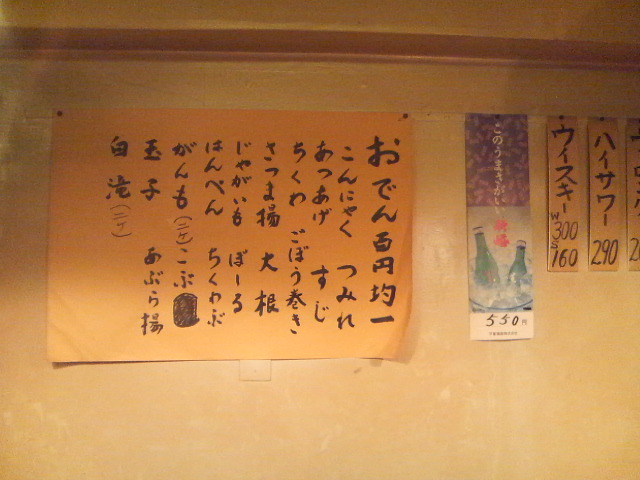 おでん百円均一
こんにゃく つみれ
あつあげ すじ
ちくわ ごぼう巻き
さつま揚 大根
じゃがいも ぼーる
はんぺん ちくわぶ
がんも(二ケ)こぶ
玉子 あぶら揚
白滝(二ケ)
このうまさがいい
550円
ウイスキー
W 300
S 160
ハイサワー
290